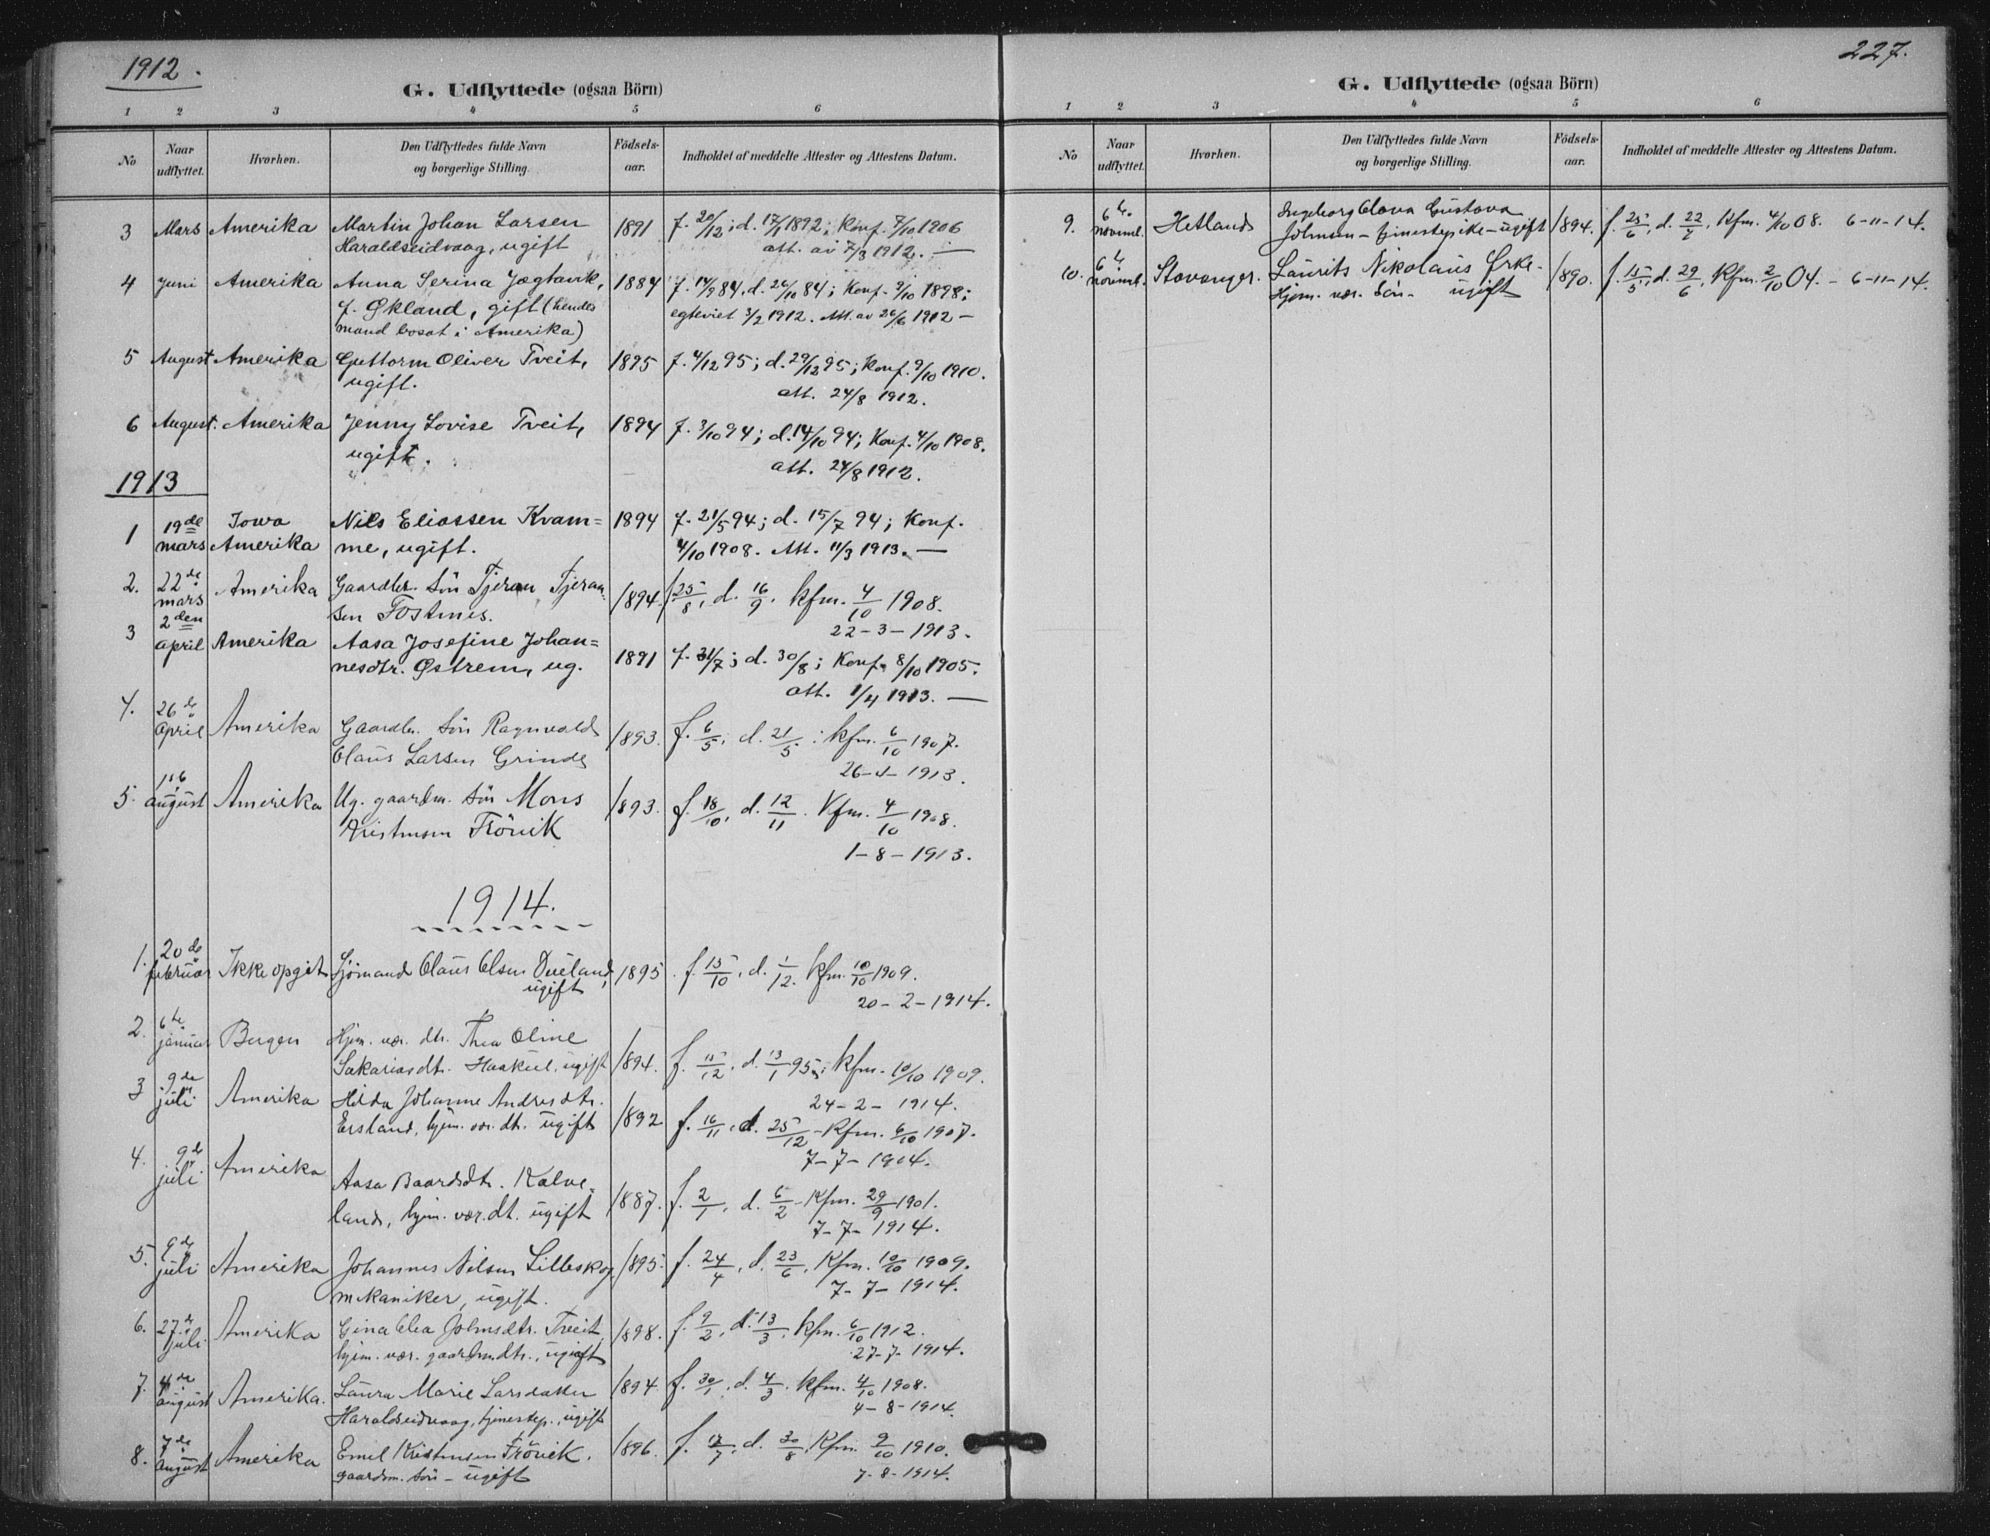 1912.
G. Udflyttede (ogsaa Börn)
1 2 3 4 5 6
No
Naar udflyttet.
Hvorhen.
Den Udflyttedes fulde Navn og borgerlige Stilling.
Födselsaar.
Indholdet af meddelte Attester og Attestens Datum.
3 Mars Amerika Martin Johan Larsen 1891 f. 20/12; d. 17/1 1892; Konf. 7/10 1906
Haraldseidvaag, ugift att. av 7/3 1912. —
4 Juni Amerika Anna Serina Jægtavik, 1884 f. 14/9 84, d. 26/10 84; Konf. 9/10 1898;
f. Økland, gift (hendes egteviet 3/2 1912. Att. av 26/6 1912 —
mand bosat i Amerika)
5 August Amerika Guttorm Oliver Tveit, 1895 f. 4/12 95; d. 29/12 95; Konf. 9/10 1910.
ugift. att. 24/8 1912.
6 August. Amerika Jenny Lovise Tveit, 1894 f. 3/10 94; d. 14/10 94; Konf. 4/10 1908.
ugift. att. 24/8 1912.
1913
1 19de mars Iowa Amerika Nils Eliassen Kvam= 1894 f. 21/5 94; d. 15/7 94; Konf.
me, ugift. 4/10 1908. Att. 11/3 1913. —
2. 22de mars Amerika Gaardbr. sön Tjeran Tjeran- 1894. f. 25/8, d. 16/9. kfm. 4/10 1908.
sen Tostnes. 22-3-1913.
3 2den april Amerika Aasa Josefine Johan= 1891 f. 31/7; d. 30/8; Konf. 8/10 1905.
nesdtr. Østrem, ug. att. 1/4 1913. —
4. 26de april Amerika Gaardbr. sön Ragnvald 1893. f. 6/5, d. 21/5; kfm. 6/10 1907.
Olaus Larsen Grinde 26-4-1913.
5. august Amerika Ug. gaardm. sön Mons 1893. f. 18/10, d. 12/11. Kfm. 4/10 1908.
Kristensen Frövik 1-8-1913.
1914.
1. 20de februar Ikke opgit Sjömand Olaus Olsen Dueland, 1895. f. 15/10, d. 1/12. kfm. 10/10 1909.
ugift 20-2-1914.
2. 6te januar Bergen Hjem. vær. dtr. Thea Oline
Sakariasdtr. ugift 1894. f. 15/12, d. 13/1 95; kfm. 10/10 1909.
24-2-1914.
3 9de juli Amerika Hilda Johanne Andresdtr.
Ersland, hjem. vær. dt. ugift 1892 f. 16/11, d. 25/12 - kfm. 6/10 1907.
7-7-1914.
4. 9de juli Amerika Aasa Baardsdtr. Kalve-
land, hjem. vær. dt. ugift 1887. f. 2/1, d. 6/2 - Kfm. 29/9 1901.
7-7-1914.
5. 9de juli Amerika Johannes Nilsen Lilleskog, 1895. f. 24/4, d. 23/6, Kfm. 10/10 1909.
mekaniker, ugift. 7-7-1914.
6. 27de juli Amerika Gina Elea Johnsdtr. Tveit 1898. f. 9/2, d. 13/3, kfm. 6/10 1912.
hjem. vær. gaardmdtr., ugift 27-7-1914.
7. 4de august Amerika. Laura Marie Larsdatter 1894 f. 30/1, d. 4/3. kfm. 4/10 1908.
Haraldseidvaag, tjenestep., ugift 4-8-1914.
8. 7de august Amerika Emil Kristensen Frövik. 1896. f. 12/7, d. 30/8. Kfm. 9/10 1910.
gaardm. sön - ugift 7-8-1914.
227.
G. Udflyttede (ogsaa Börn)
1 2 3 4 5 6
No
Naar udflyttet.
Hvorhen.
Den Udflyttedes fulde Navn og borgerlige Stilling.
Födselsaar.
Indholdet af meddelte Attester og Attestens Datum.
9. 6te novembr. Hetland Ingeborg Olava Gustava
Johnsen - tjenestepike - ugift 1894. f. 25/6, d. 22/7, Kfm. 4/10 08. 6-11-14.
10. 6te novembr. Stavanger. Laurits Nikolaus Ørke- 1890. f. 15/5, d. 29/6, Kfm. 2/10 04. - 6-11-14.
Hjem. vær. sön - ugift